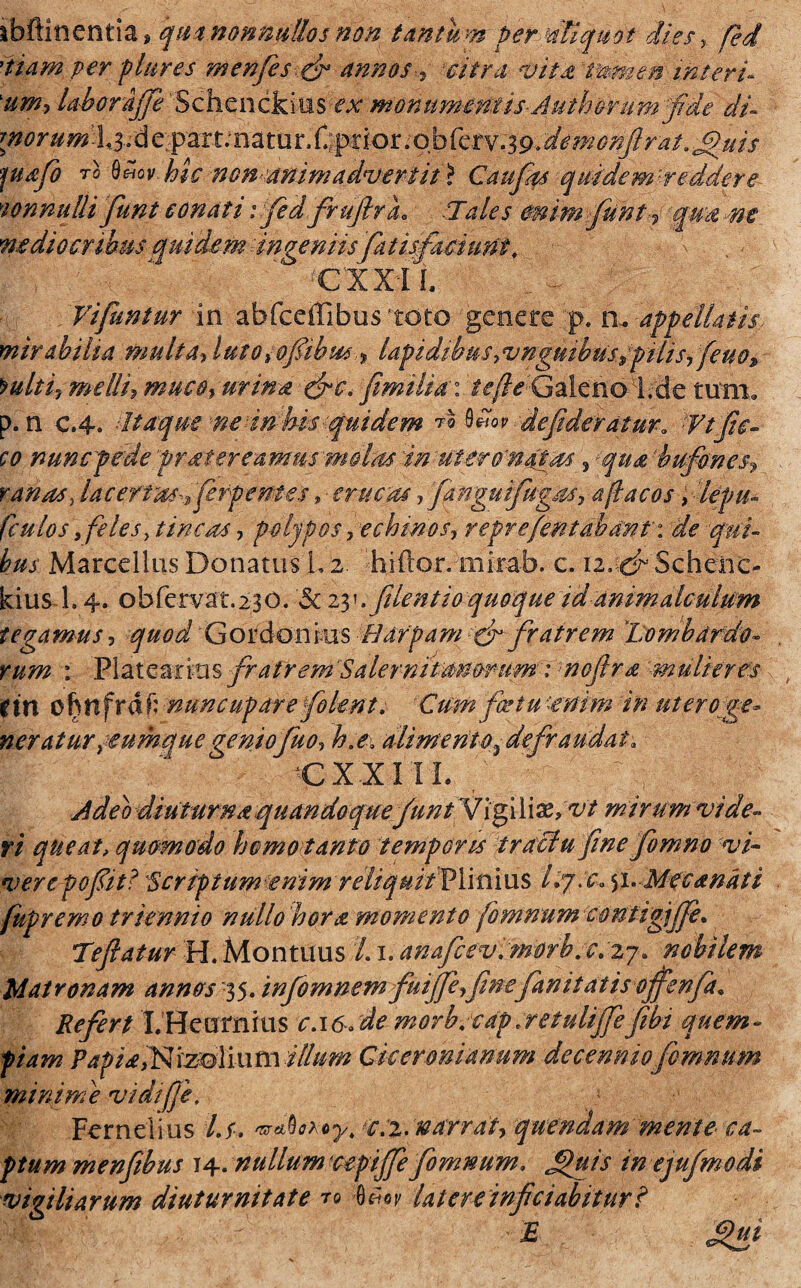 abſtinentia, qua nonnullos non tantùm per aliquot dies, ſed
etiam per plures menſes & annos, citra vitæ tamen interi-
tum, laboraſſe Schenckius ex monumentis Authorum fide di-
gnorum l.3. de part. natur. ſ. prior. obſerv.39. demonſtrat. Quis
quæſo τὸ θεῖον hic non animadvertit? Cauſas quidem reddere
nonnulli ſunt conati: ſed fruſtrà. Tales enim ſunt, quæ ne
mediocribus quidem ingeniis ſatisfaciunt.
CXXII.
Viſuntur in abſceſſibus toto genere p. n. appellatis
mirabilia multa, luto, oſsibus, lapidibus, vnguibus, pilis, ſeuo,
pulti, melli, muco, urinæ &c. ſimilia: teſte Galeno l. de tum.
p. n c.4. Itaque ne in his quidem τὸ θεῖον deſideratur. Vt ſic-
co nunc pede prætereamus molas in utero natas, quæ bufones,
ranas, lacertas, ſerpentes, erucas, ſanguiſugas, aſtacos, lepu-
ſculos, feles, tincas, polypos, echinos, repreſentabant: de qui-
bus Marcellus Donatus l. 2 hiſtor. mirab. c. 12. & Schenc-
kius l. 4. obſervat. 230. & 231. ſilentio quoque id animalculum
tegamus, quod Gordonius Harpam & fratrem Lombardo-
rum: Platearius fratrem Salernitanorum: noſtræ mulieres
ein ohnfraſ: nuncupare ſolent. Cum fœtu enim in utero ge-
neratur, eumque genio ſuo, h.e. alimento, defraudat.
CXXIII.
Adeò diuturnæ quandoque ſunt Vigiliæ, vt mirum vide-
ri queat, quomodo homo tanto temporis tractu ſine ſomno vi-
vere poſsit? Scriptum enim reliquit Plinius l.7. c. 51. Mecænati
ſupremo triennio nullo horæ momento ſomnum contigiſſe.
Teſtatur H. Montuus l. 1. anaſcev. morb. c. 27. nobilem
Matronam annos 35. inſomnem fuiſſe, ſine ſanitatis offenſa.
Refert I. Heurnius c.16. de morb. cap. retuliſſe ſibi quem-
piam Papiæ, Nizolium illum Ciceronianum decennio ſomnum
minimè vidiſſe.
Fernelius l.5. παθολογ. c.2. narrat, quendam mente ca-
ptum menſibus 14. nullum cepiſſe ſomnum. Quis in ejuſmodi
vigiliarum diuturnitate τὸ θεῖον latere inficiabitur?
E Qui